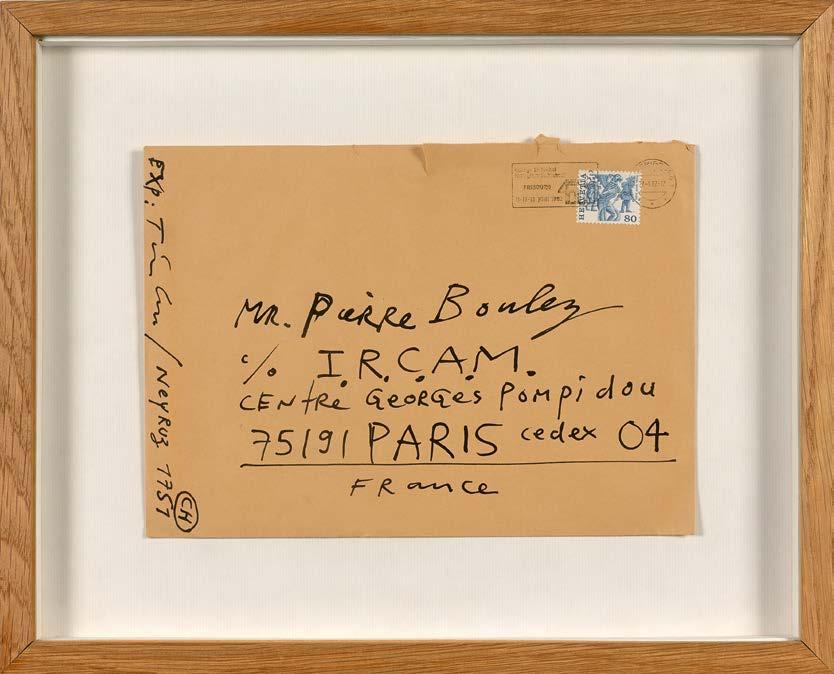 EXP: / NEYRUZ 1751
CH
FRIBOURG
HELVETIA
80
MR. Pierre Boulez
c/o I.R.C.A.M.
CENTRE GEORGES Pompidou
75191 PARIS cedex 04
FRance